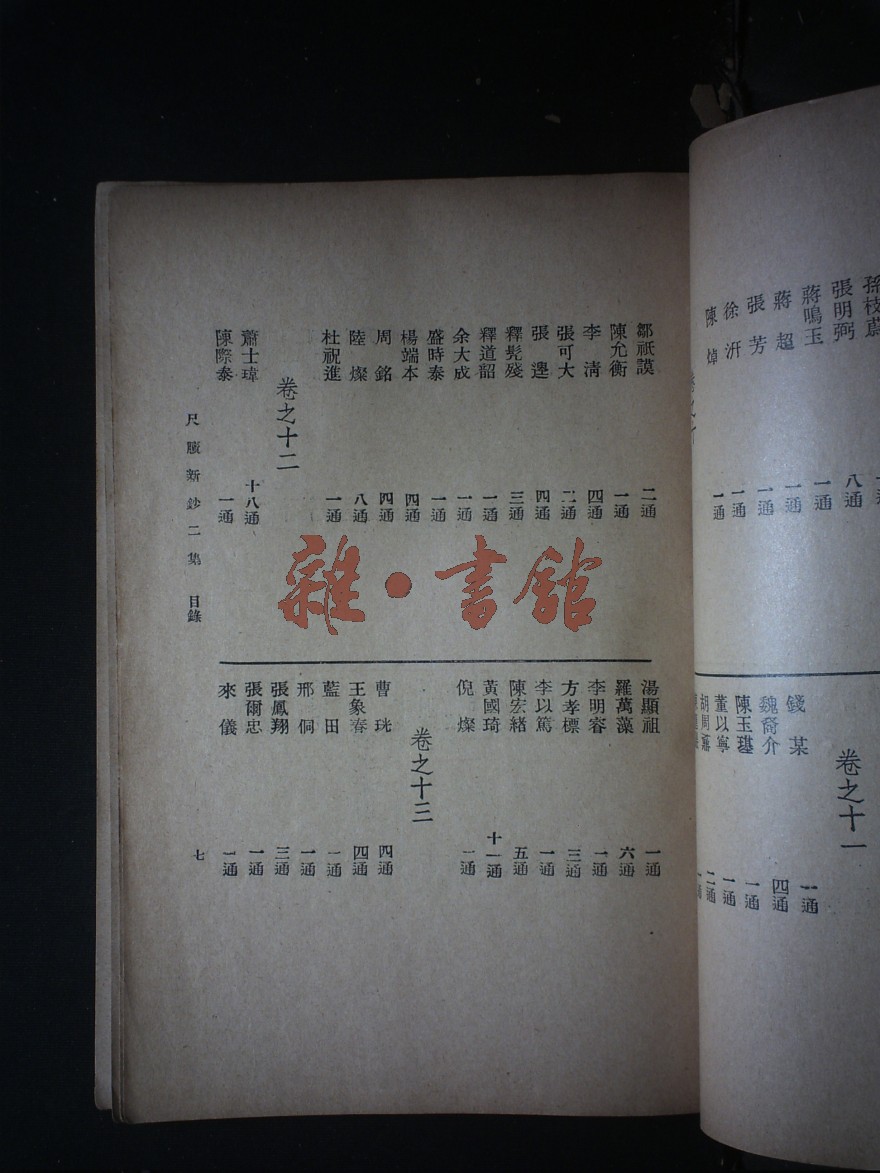 孫枝蔚
張明弼 八通
蔣鳴玉 一通
蔣 超 一通
張 芳 一通
徐 汧 一通
陳 焯 一通
卷之十一
錢 某 一通
魏裔介 四通
陳玉璂 一通
董以寧 一通
胡周鼒 二通
鄒祇謨 二通
陳允衡 一通
李 清 四通
張可大 二通
張 遺 四通
釋髡殘 三通
釋道韶 一通
余大成 一通
盛時泰 一通
楊端本 四通
周 銘 四通
陸 燦 八通
杜祝進 一通
卷之十二
蕭士瑋 十八通
陳際泰 一通
湯顯祖 一通
羅萬藻 六通
李明睿 一通
方孝標 三通
李以篤 一通
陳宏緒 五通
黃國琦 十一通
倪 燦 一通
卷之十三
曹 珖 四通
王象春 四通
藍 田 一通
邢 侗 一通
張鳳翔 三通
張爾忠 一通
來 儀 一通
尺牘新鈔二集 目錄
七
雜·書館